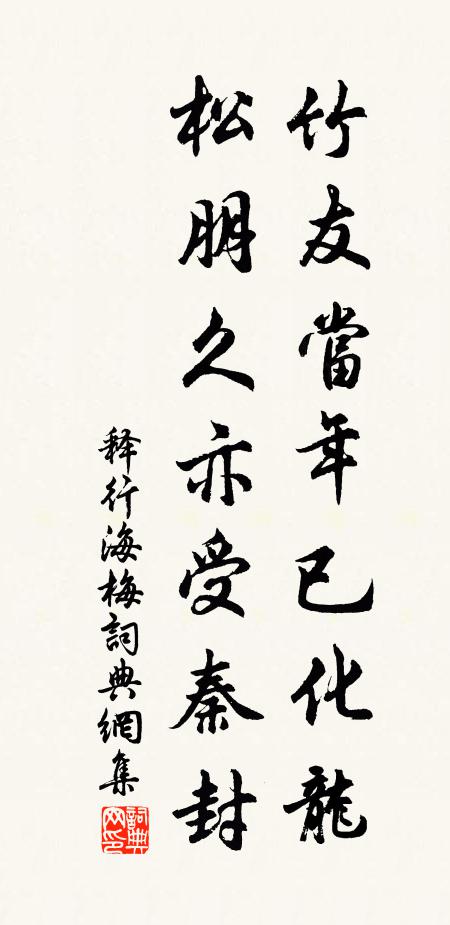 竹友當年已化龍
松朋久亦受秦封
释行海梅詞典網集
詞典网印